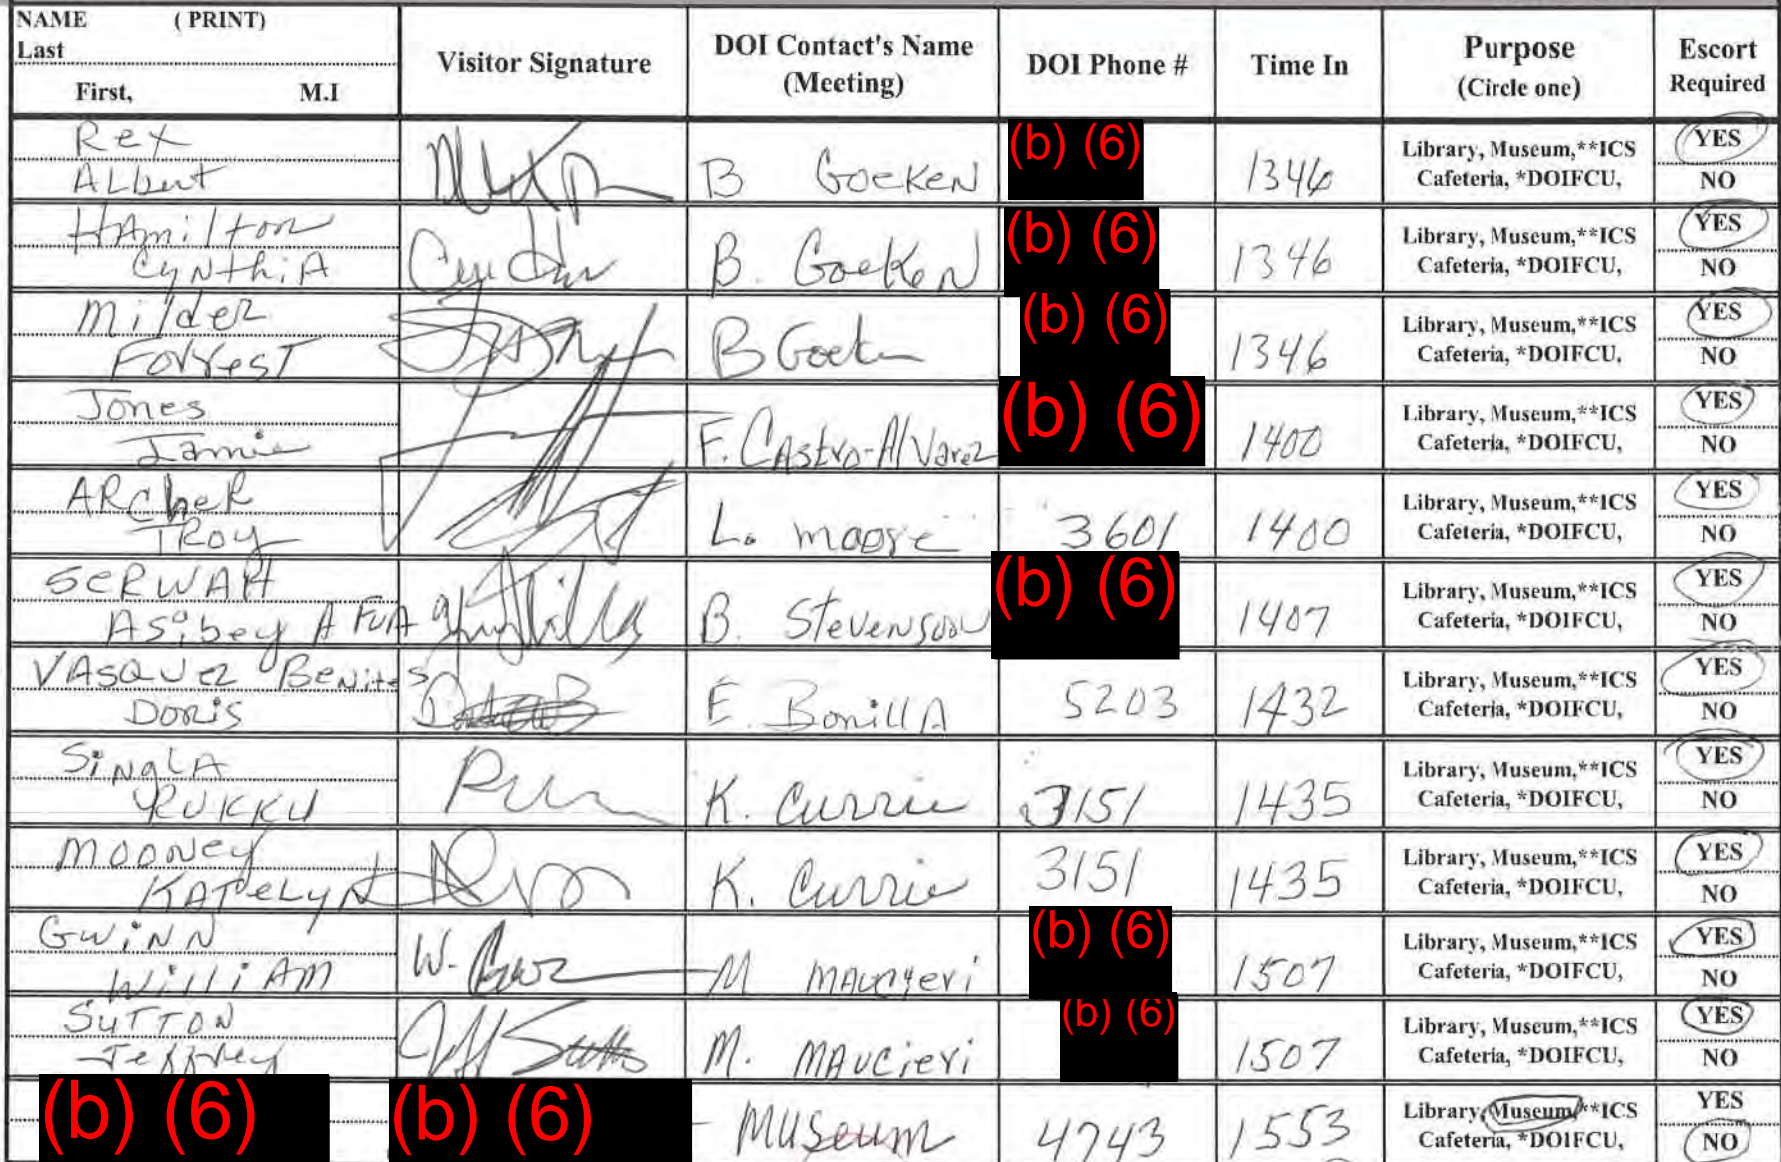 NAME ( PRINT)
Last
First, M.I
Visitor Signature
DOI Contact's Name
(Meeting)
DOI Phone #
Time In
Purpose
(Circle one)
Escort
Required
Rex
Albert
B Goeken
(b) (6)
1346
Library, Museum,**ICS
Cafeteria, *DOIFCU,
YES
NO
HAmilton
CyNthiA
B. Goeken
(b) (6)
1346
Library, Museum,**ICS
Cafeteria, *DOIFCU,
YES
NO
Milder
Forrest
B Goeken
(b) (6)
1346
Library, Museum,**ICS
Cafeteria, *DOIFCU,
YES
NO
Jones
Jamie
F. CAstro-Alvarez
(b) (6)
1400
Library, Museum,**ICS
Cafeteria, *DOIFCU,
YES
NO
ARcheR
TRoy
L. moore
3601
1400
Library, Museum,**ICS
Cafeteria, *DOIFCU,
YES
NO
SERWAH
Asibey AFUA
B. Stevenson
(b) (6)
1407
Library, Museum,**ICS
Cafeteria, *DOIFCU,
YES
NO
VASQUez Benites
Doris
E. BonillA
5203
1432
Library, Museum,**ICS
Cafeteria, *DOIFCU,
YES
NO
SiNglA
RUKKU
K. Currie
3151
1435
Library, Museum,**ICS
Cafeteria, *DOIFCU,
YES
NO
MOONey
KATELYN
K. Currie
3151
1435
Library, Museum,**ICS
Cafeteria, *DOIFCU,
YES
NO
GwiNN
WilliAM
W.
M MAucieri
(b) (6)
1507
Library, Museum,**ICS
Cafeteria, *DOIFCU,
YES
NO
SUTTON
Jeffrey
Jeff Sutton
M. MAUCieri
(b) (6)
1507
Library, Museum,**ICS
Cafeteria, *DOIFCU,
YES
NO
(b) (6)
(b) (6)
MUSeum
4743
1553
Library, Museum,**ICS
Cafeteria, *DOIFCU,
YES
NO